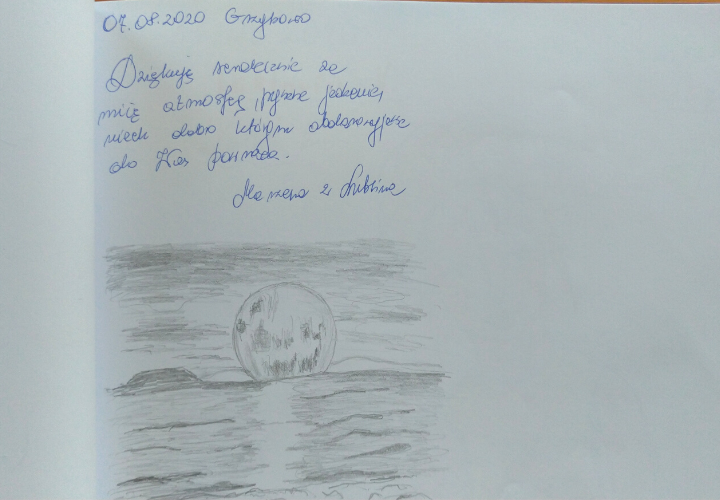 07.08.2020 Grzybowo
Dziękuję serdecznie za
miłą atmosferę, pyszne jedzenie,
niech dobro którym obdarowujecie
do Was powraca.
Marzena z Lublina